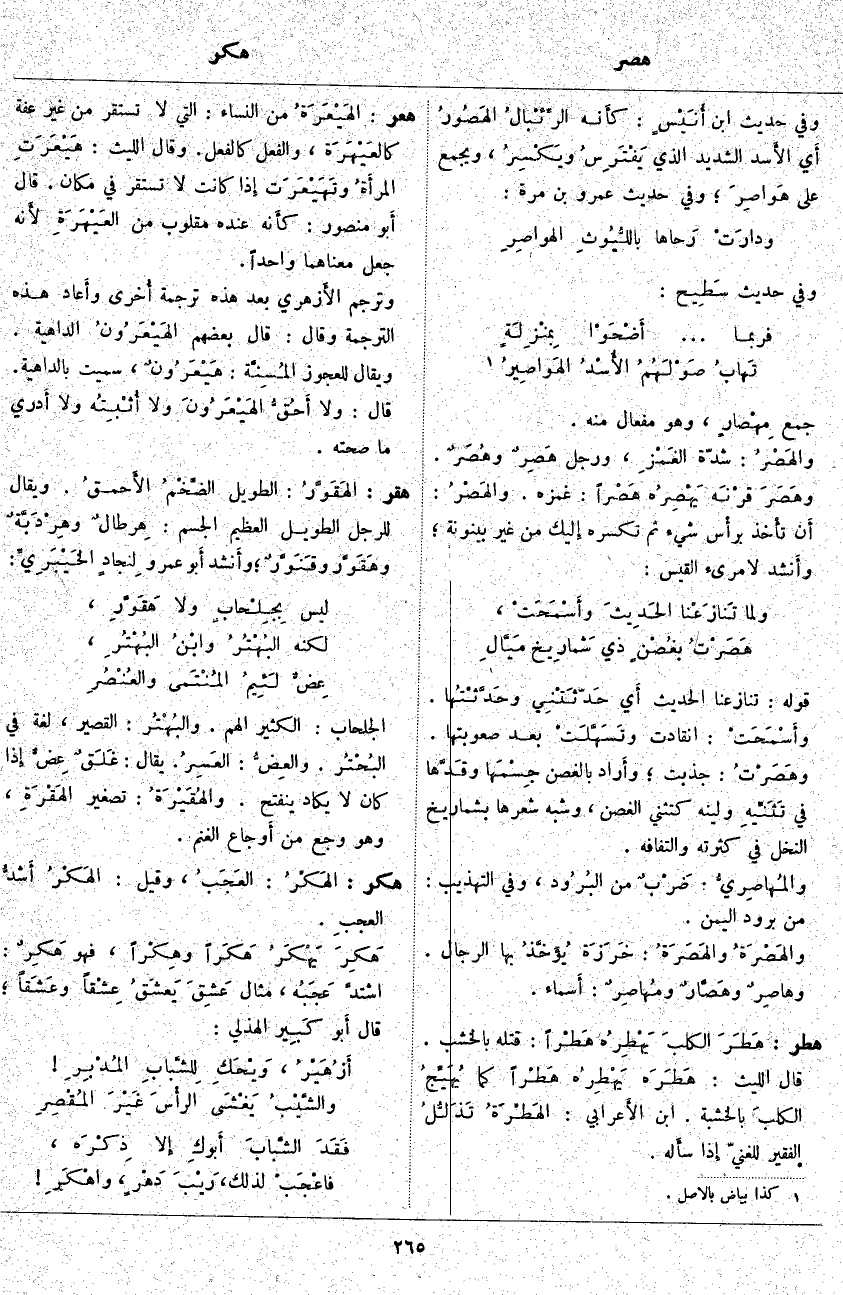 هصر
هكر
وفي حديث ابن أُنَيْسٍ : كأَنه الرِّئْبالُ الهَصُورُ
أَي الأَسد الشديد الذي يَفْتَرِسُ ويَكْسِرُ ، ويجمع
على هَواصِرَ ؛ وفي حديث عمرو بن مرة :
ودارَتْ رَحاها باللُّيُوثِ الهواصِرِ
وفي حديث سَطِيح :
فربما ... أَضْحَوْا بِمَنْزِلَةٍ
تَهابُ صَوْلَهُمُ الأُسْدُ الهَواصِيرُ ١
جمع مِهْصارٍ ، وهو مفعال منه .
والهَصْرُ : شدّة الغَمْزِ ، ورجل هَصِرٌ وهُصَرٌ .
وهَصَرَ قِرْنَه يَهْصِرُه هَصْراً : غمزه . والهَصْرُ :
أَن تأْخذ برأْس شيء ثم تكسره إِليك من غير بينونة ؛
وأَنشد لامرىء القيس :
ولما تَنازَعْنا الحَديثَ وأَسْمَحَتْ ،
هَصَرْتُ بغُصْنٍ ذي شَماريخَ مَيَّالِ
قوله : تنازعنا الحديث أَي حَدَّثَتْني وحَدَّثْتُها .
وأَسْمَحَتْ : انقادت وتَسَهَّلَتْ بعد صعوبتها .
وهَصَرْتُ : جذبت ؛ وأَراد بالغصن جِسْمَها وقَدَّها
في تَثَنِّيهِ ولينه كتثني الغصن ، وشبه شعرها بشماريخ
النخل في كثرته والتفافه .
والمُهاصِرِيُّ : ضَرْبٌ من البُرُود ، وفي التهذيب :
من برود اليمن .
والهَصْرَةُ والهَصَرَةُ : خَرَزَة يُؤَخَّذُ بها الرجال .
وهاصِرٌ وهَصَّارٌ ومُهاصِرٌ : أَسماء .
هطر : هَطَرَ الكلبَ يَهْطِرُه هَطْراً : قتله بالخشب .
قال الليث : هَطَرَه يَهْطِرُه هَطْراً كما يُهَيَّجُ
الكلبَ بالخشبة . ابن الأَعرابي : الهَطْرَةُ تَذَلُّلُ
الفقير للغنيّ إِذا سأَله .
١ كذا بياض بالاصل .
هعر : الهَيْعَرَةُ من النساء : التي لا تستقر من غير عفة
كالعَيْهَرَة ، والفعل كالفعل. وقال الليث : هَيْعَرَتِ
المرأَةُ وتَهَيْعَرَت إِذا كانت لا تستقر في مكان. قال
أَبو منصور : كأَنه عنده مقلوب من العَيْهَرَةِ لأَنه
جعل معناهما واحداً.
وترجم الأَزهري بعد هذه ترجمة أُخرى وأَعاد هذه
الترجمة وقال : قال بعضهم الهَيْعَرُونُ الداهية .
ويقال للعجوز المُسِنَّة : هَيْعَرُونٌ ، سميت بالداهية.
قال : ولا أَحُقُّ الهَيْعَرُونَ ولا أُثْبِتُه ولا أَدري
ما صحته .
هقر : الهَقَوَّرُ : الطويل الضَّخْمُ الأَحمقُ . ويقال
للرجل الطويل العظيم الجسم : هِرطالٌ وهِرْدَبَّةٌ
وهَقَوَّر وقَنَوَّرٌ ؛ وأَنشد أَبو عمرو لِنجادٍ الخَيْبَرِيّ :
ليس بِجِلْحابٍ ولا هَقَوَّرِ ،
لكنه البُهْتُرُ وابْنُ البُهْتُرِ ،
عِضٌّ لَئِيمُ المُنْتَمَى والعُنْصُرِ
الجلحاب : الكثير الهم . والبُهْتُر : القصير ، لغة في
البُحْتُر . والعِضُّ : العَسِرُ. يقال : غَلَقٌ عِضٌّ إِذا
كان لا يكاد ينفتح . والهُقَيْرَةُ : تصغير الهَقْرَةِ ،
وهو وجع من أَوجاع الغنم .
هكر : الهَكْرُ : العَجَبُ ، وقيل : الهَكْرُ أَشدُّ
العجبِ .
هَكِرَ يَهْكَرُ هَكَراً وهِكْراً ، فهو هَكِرٌ :
اشتدَّ عَجَبُه ، مثال عَشِقَ يَعشَقُ عِشْقاً وعَشَقاً ؛
قال أَبو كَبِيرٍ الهذلي :
أَزُهَيْرُ ، وَيْحَكِ لِلشَّبابِ المُدْبِرِ !
والشَّيْبُ يَغْشَى الرأْسَ غَيْرَ المُقْصِرِ
فَقَدَ الشَّبابَ أَبوكِ إِلا ذِكْرَه ،
فاعْجَبْ لذلك، رَيْبَ دَهْرٍ ، واهْكَرِ !
٢٦٥